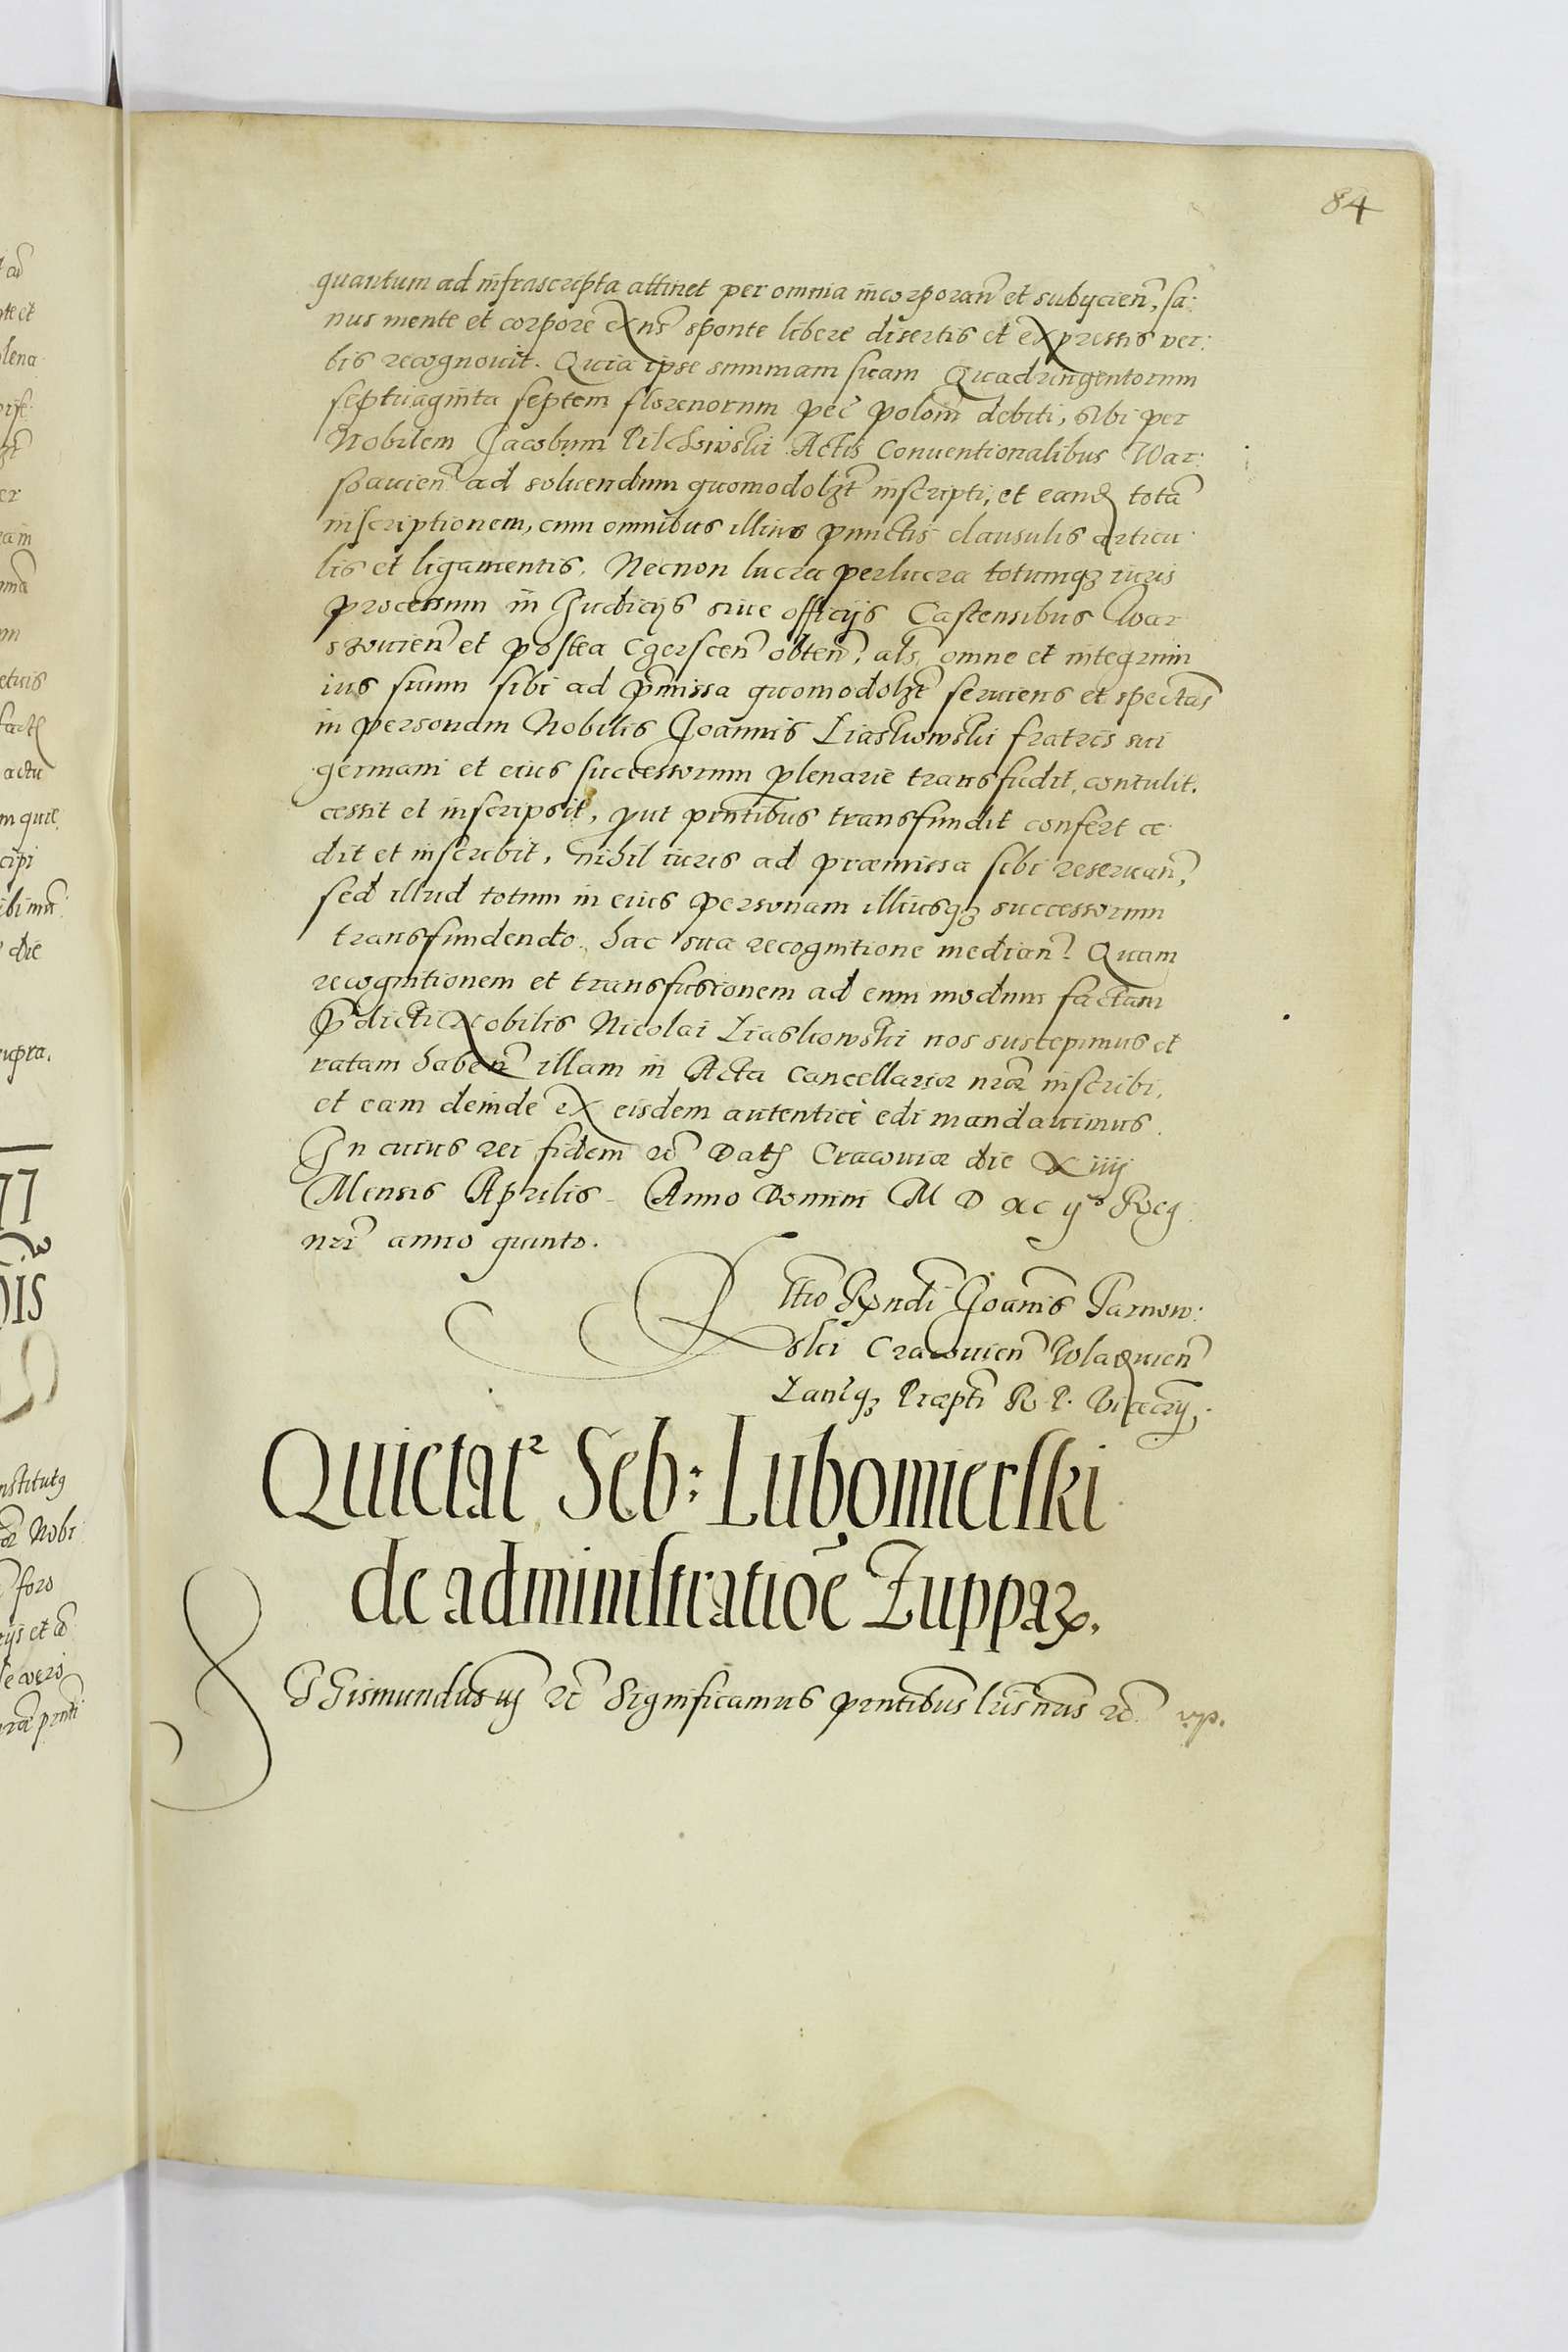 84
quantum ad infrascripta attinet per omnia incorporan̄ et subycien̄, sa:
nus mente et corpore exns̄ sponte libere disertis et expressis ver:
bis recognouit. Quia ipse summam suam Quadringentorum
septuaginta septem florenorum pec̄ polon̄ debiti, sibi per
Nobilem Jacobum Pilchowski Actis Conuentionalibus War:
sauien̄ ad soluendum quomodolzt̄ inscripti, et eand totā
inscriptionem, cum omnibus illius punctis clausulis articu
lis et ligamentis. Necnon lucra perlucra totumqꝫ iuris
processum in Judicijs siue officijs Castensibus War
szouien̄ et postea Cgerscen̄ obten̄, als̄ omne et integrum
ius suum sibi ad pr̄missa quomodolzt̄ seruiens et spectās
in personam Nobilis Joannis Liaskowski fratris sui
germani et eius successorum plenarie transfudit, contulit,
cessit et inscripsit, put pn̄tibus transfundit confert ce
dit et inscribit, nihil iuris ad præmissa sibi reseruan̄,
sed illud totum in eius personam illiusqꝫ successorum
transfundendo, hac sua recognitione median̄. Quam
recognitionem et transfusionem ad eum modum factam
p̄dicti Nobilis Nicolai Liaskowski nos suscepimus et
ratam haben̄ illam in Acta Cancellariæ nr̄æ inscribi,
et eam deinde ex eisdem autenticè edi mandauimus.
In cuius rei fidem &c̄ Datꝭ Cracouiæ die X iiij
Mensis Aprilis. Anno Domini M D XC ijº Reg
nr̄i anno quinto.
Rl̄tio Rn̄di Joan̄is Tarnow:
ski Cracouien̄ Wladuien̄
Lan̄qꝫ Præpti R. P. Vicecr̄ij.
Quietatº Seb: Lubomierski
de administratiōe Zuppaꝝ.
SGismundus iij &c̄ Significamus pn̄tibus lr̄is nr̄is &c̄